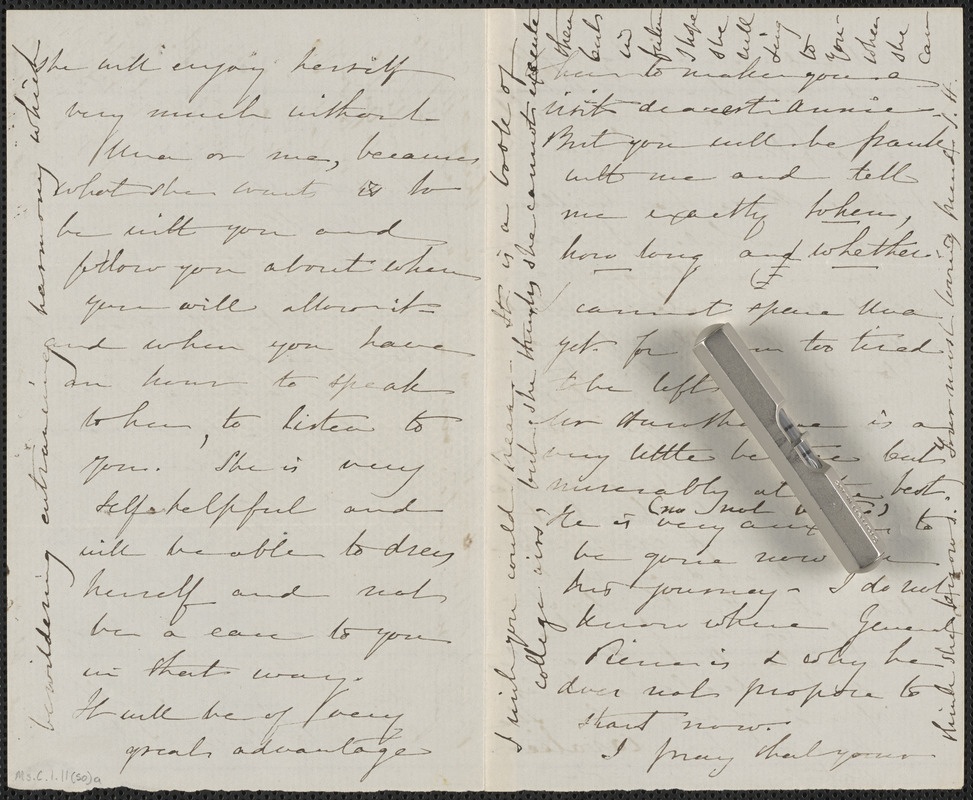 she will enjoy herself
very much without
Una or me, because
what she wants is to
be with you and
follow you about when
you will allow it
and when you have
an hour to speak
to her, to listen to
you. She is very
self-helpful and
will be able to dress
herself and not
be a care to you
in that way.
It will be of very
great advantage
her to make you a
visit dearest Annie.
But you will be frank
with me and tell
me exactly when,
how long and whether.
I cannot spare Una
yet. for too tired
to be left
Mr Hawthorne is a
very little better but
miserably at the best.
(no not)
He is very anxious to
be gone now
his journey - I do not
know where General
Pierce is & why he
does not propose to
start now.
I pray that your
I wish you could hear - It is a book of
college airs, but she thinks she cannot execute
them
but
in
future
I hope
she
will
sing
to
you
when
she
can
bewildering entrancing harmony which
Your most loving friend S. H.